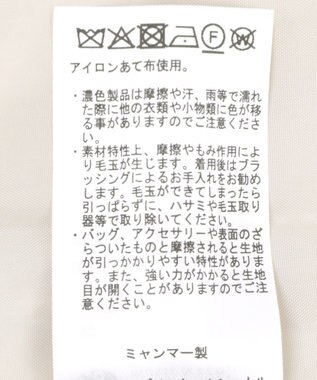 アイロンあて布使用。
・濃色製品は摩擦や汗、雨等で濡れ
た際に他の衣類や小物類に色が移
る事がありますのでご注意くださ
い。
・素材特性上、摩擦やもみ作用によ
り毛玉が生じます。着用後はブラ
ッシングによるお手入れをお勧め
します。毛玉ができてしまったら
引っぱらずに、ハサミや毛玉取り
器等で取り除いてください。
・バッグ、アクセサリーや表面のざ
らついたものと摩擦されると生地
が引っかかりやすい特性がありま
す。また、強い力がかかると生地
目が開くことがありますのでご注
意ください。
ミャンマー製